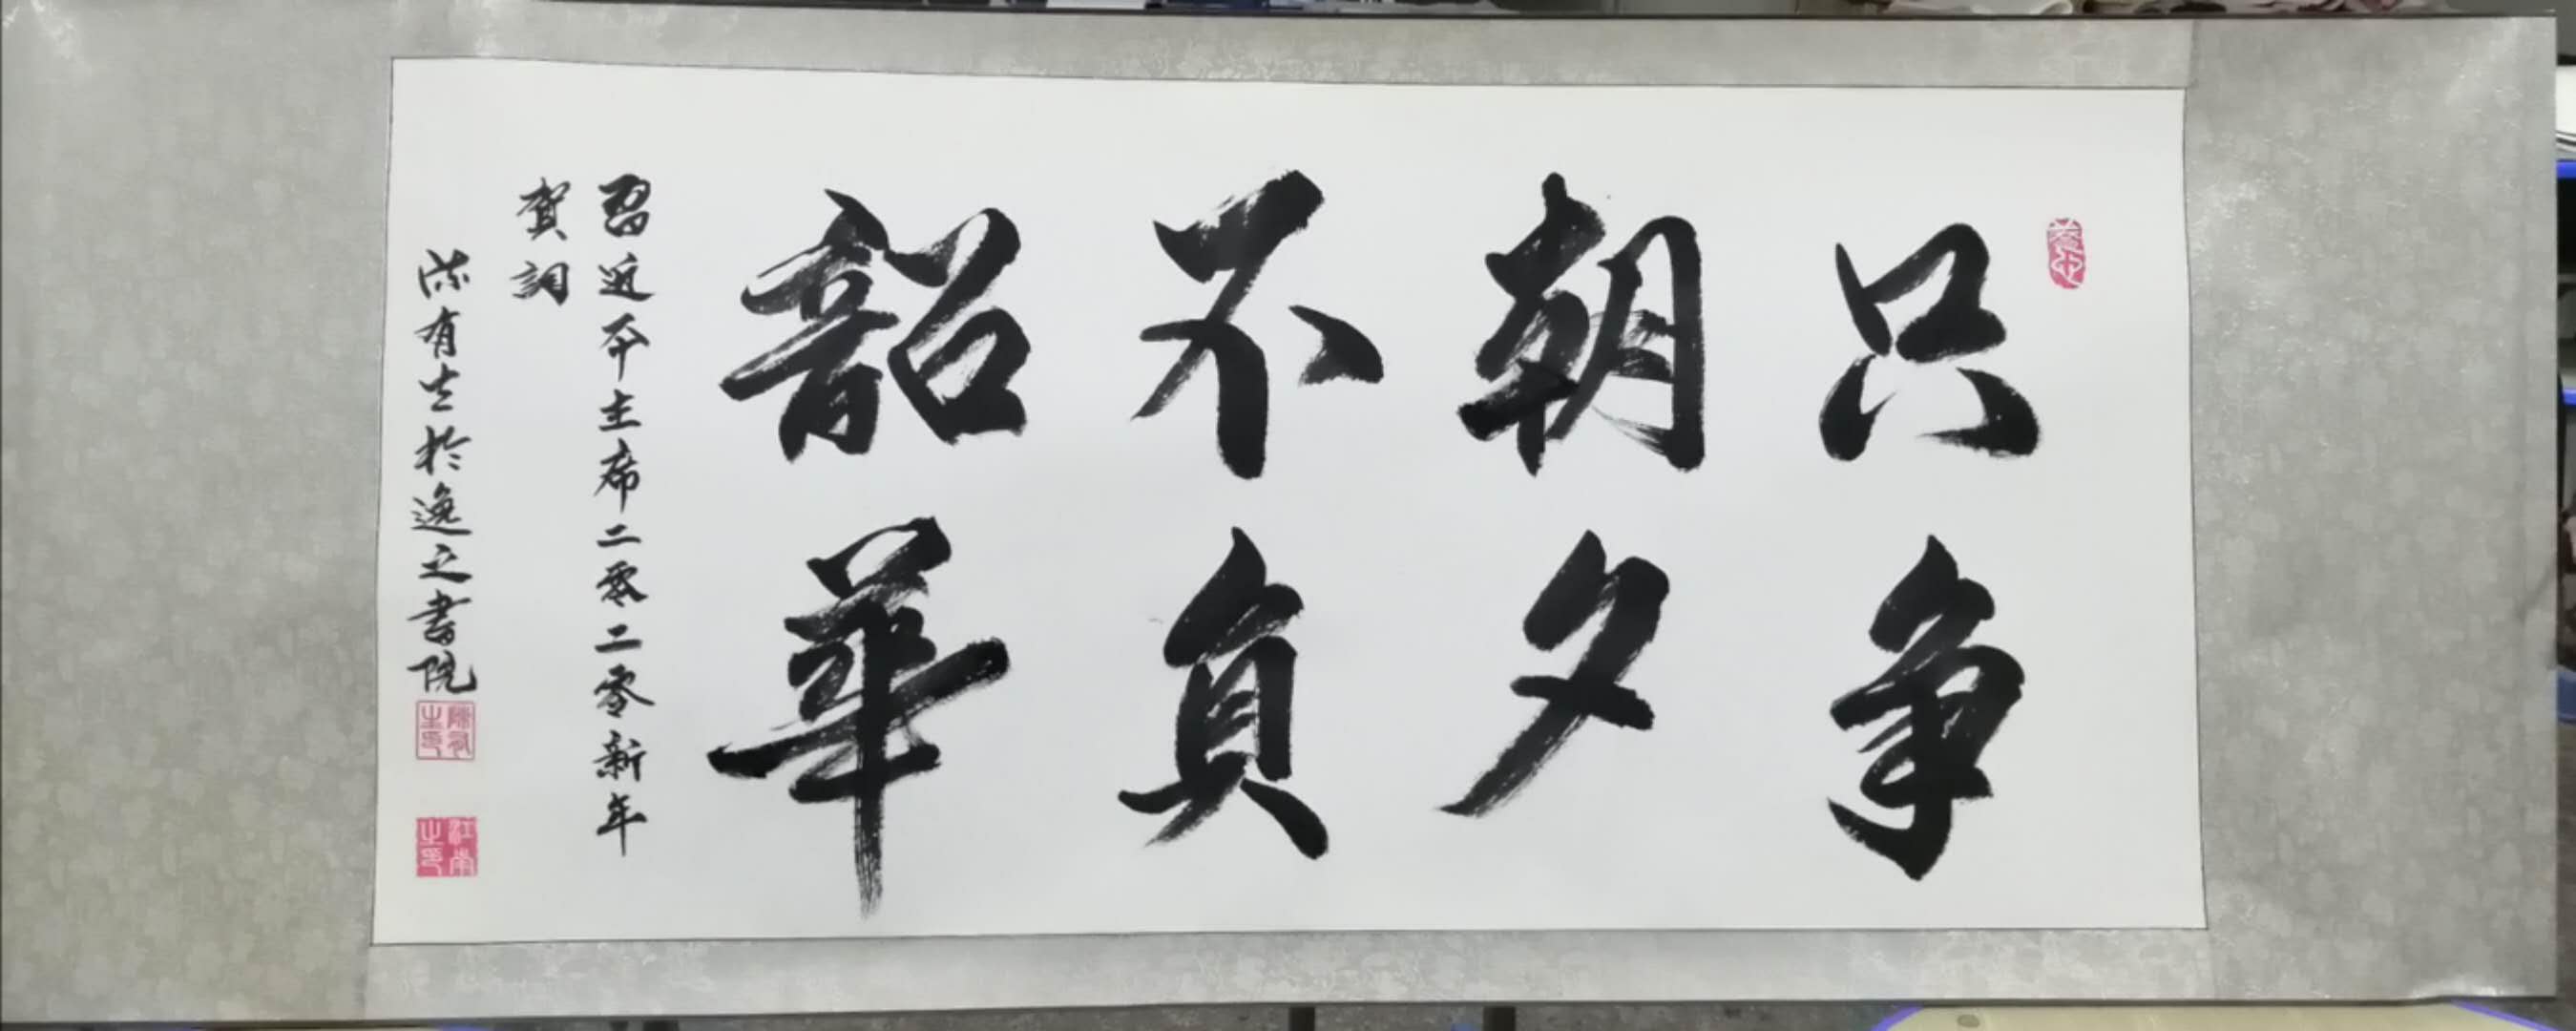 只争
朝夕
不負
韶華
習近平主席二零二零新年
賀詞
陈有生於逸之書院